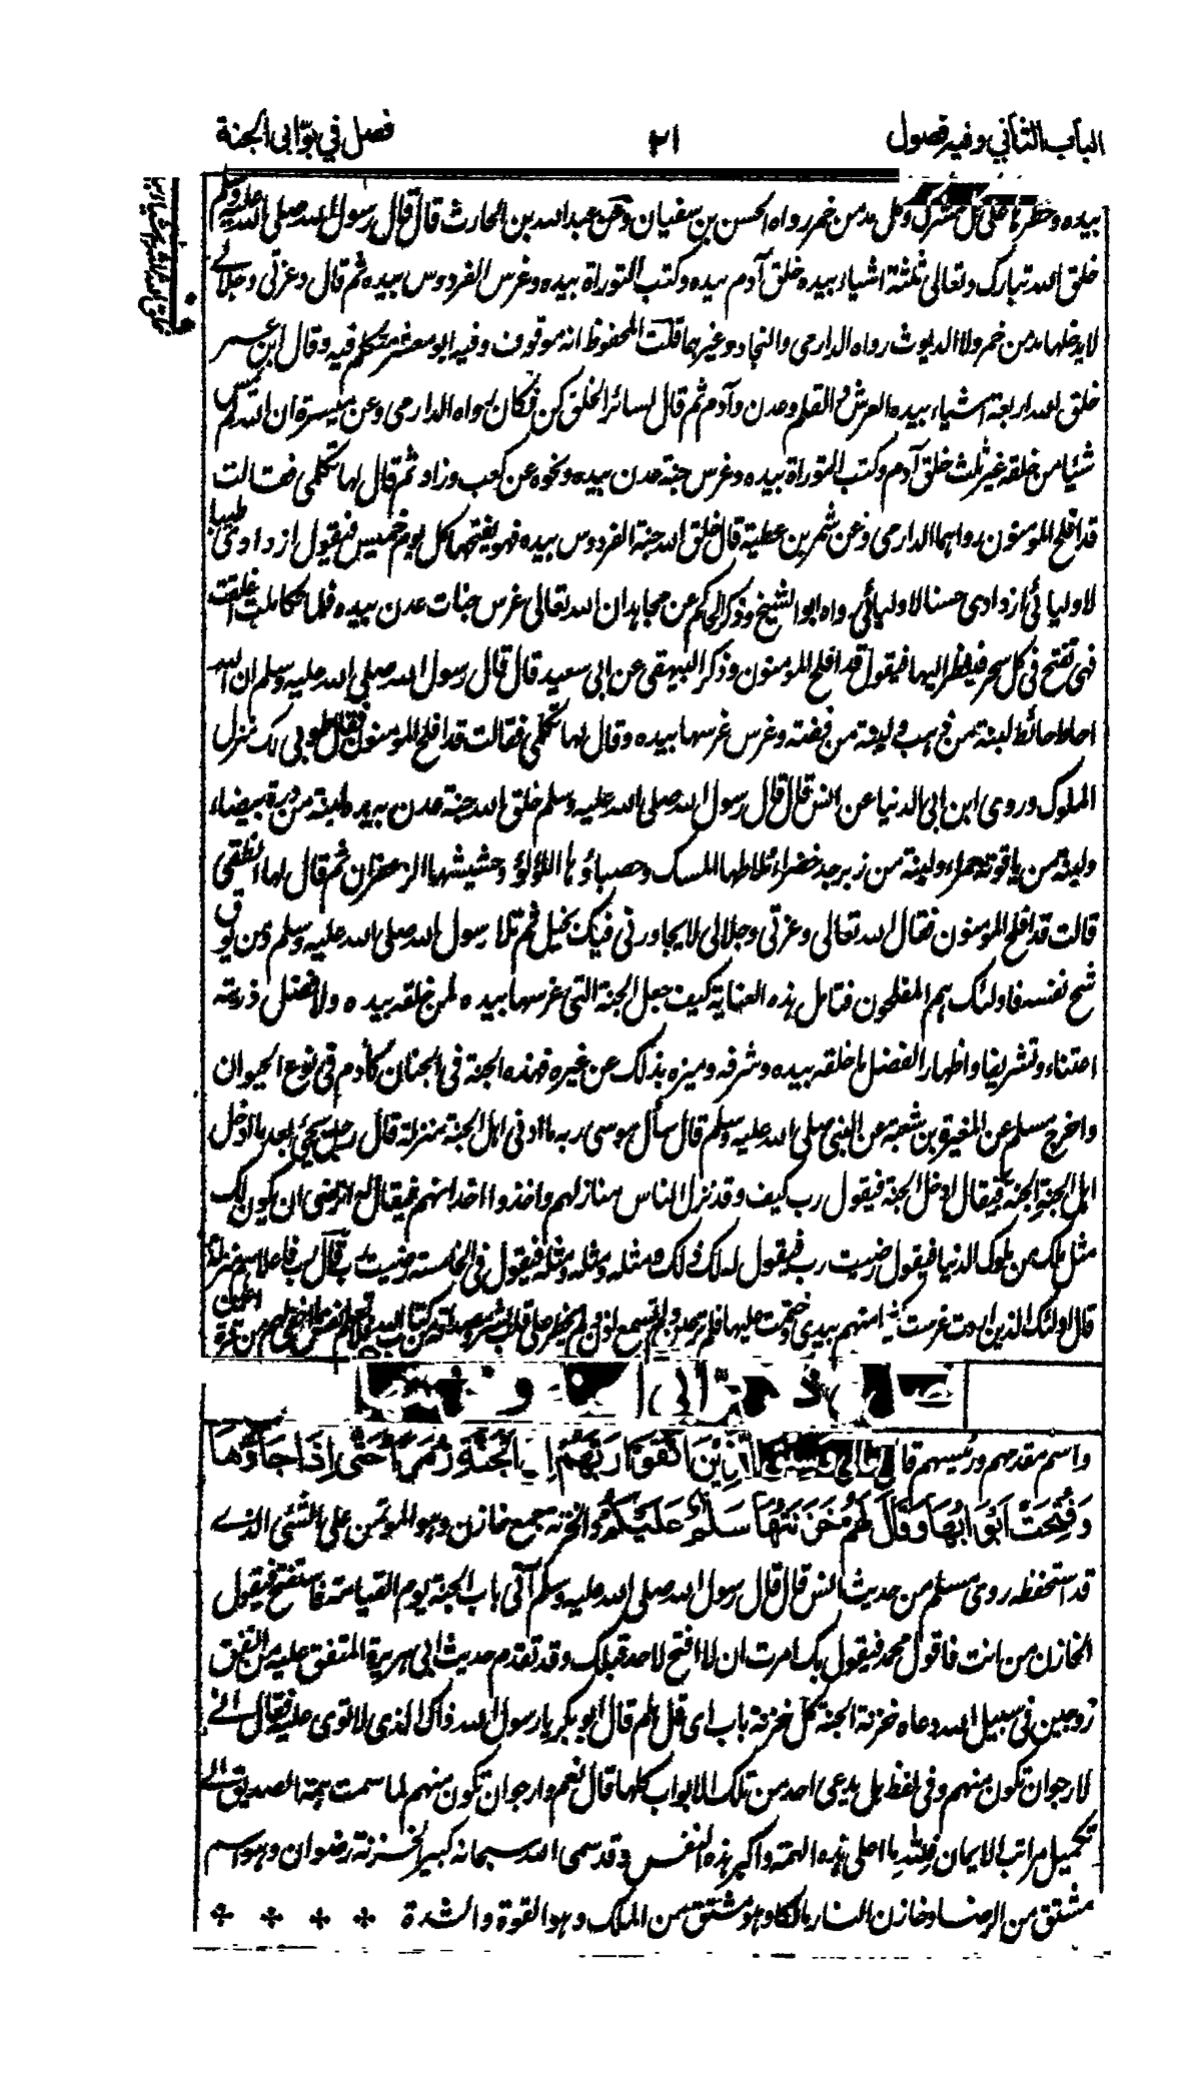 الباب الثاني وفيه فصول
٢١
فصل في بوّابى الجنة
بيده وحظرها على كل مشرك وكل مدمن خمر رواه الحسن بن سفيان وعن عبد الله بن الحارث قال قال رسول الله صلى الله عليه وسلم
خلق الله تبارك وتعالى ثلثة اشياء بيده خلق آدم بيده وكتب التوراة بيده وغرس الفردوس بيده ثم قال وعزتى وجلالى
لا يدخلها مدمن خمر ولا الديوث رواه الدارمى والنجاد وغيرهما قلت المحفوظ انه موقوف وفيه ابو معشر متكلم فيه وقال ابن عمر
خلق الله اربعة اشياء بيده العرش والقلم وعدن وآدم ثم قال لسائر الخلق كن فكان رواه الدارمى وعن ميسرة ان الله لم يمس
شيئا من خلقه غير ثلث خلق آدم وكتب التوراة بيده وغرس جنة عدن بيده ونحوه عن كعب وزاد ثم قال لها تكلمى فقالت
قد افلح المومنون رواهما الدارمى وعن شمر بن عطية قال خلق الله جنة الفردوس بيده فهو يفتحها كل يوم خميس فيقول ازدادى طيبا
لاوليائى ازدادى حسنا لاوليائى رواه ابو الشيخ وذكر الحاكم عن مجاهد ان الله تعالى غرس جنات عدن بيده فلما تكاملت اغلقت
فهى تفتح فى كل سحر فينظر اليها فيقول قد افلح المومنون وذكر البيهقى عن ابى سعيد قال قال رسول الله صلى الله عليه وسلم ان الله
احاط حائط لبنة من ذهب ولبنة من فضة وغرس غرسها بيده وقال لها تكلمى فقالت قد افلح المومنون فقال طوبى لك منزل
الملوك وروى ابن ابى الدنيا عن انس قال قال رسول الله صلى الله عليه وسلم خلق الله جنة عدن بيده لبنة من درة بيضاء
ولبنة من ياقوتة حمراء ولبنة من زبرجد خضراء ملاطها المسك وحصباؤها اللؤلؤ وحشيشها الزعفران ثم قال لها انطقى
قالت قد افلح المومنون فقال الله تعالى وعزتى وجلالى لا يجاورنى فيك بخيل ثم تلا رسول الله صلى الله عليه وسلم ومن يوق
شح نفسه فاولئك هم المفلحون فتامل هذه العناية كيف جعل الجنة التى غرسها بيده لمن خلقه بيده ولافضل ذريته
اعتناء وتشريفا واظهار الفضل ما خلقه بيده وشرفه وميزه بذلك عن غيره فهذه الجنة فى الجنان كآدم فى نوع الحيوان
واخرج مسلم عن المغيرة بن شعبة عن النبى صلى الله عليه وسلم قال سأل موسى ربه ما ادنى اهل الجنة منزلة قال رجل يجيئ بعد ما ادخل
اهل الجنة الجنة فيقال ادخل الجنة فيقول رب كيف وقد نزل الناس منازلهم واخذوا اخذاتهم فيقال له اترضى ان يكون لك
مثل ملك من ملوك الدنيا فيقول رضيت رب فيقول له لك ذلك ومثله ومثله ومثله فيقول فى الخامسة رضيت رب قال رب فاعلاهم منزلة
قال اولئك الذين اردت غرست كرامتهم بيدى وختمت عليها فلم تر عين ولم تسمع اذن ولم يخطر على قلب بشر
واسم مقدمهم ورئيسهم قال الَّذِيْنَ اتَّقَوْا رَبَّهُمْ اِلَى الْجَنَّةِ زُمَرًا حَتّٰى اِذَا جَاؤُهَا
وَفُتِحَتْ اَبْوَابُهَا وَقَالَ لَهُمْ خَزَنَتُهَا سَلٰمٌ عَلَيْكُمْ والخزنة جمع خازن وهو المؤتمن على الشئى الذى
قد استحفظه روى مسلم من حديث انس قال قال رسول الله صلى الله عليه وسلم آتى باب الجنة يوم القيامة فاستفتح فيقول
الخازن من انت فاقول محمد فيقول بك امرت ان لا افتح لاحد قبلك وقد تقدم حديث ابى هريرة المتفق عليه من انفق
زوجين فى سبيل الله دعاه خزنة الجنة كل خزنة باب اى فل هلم قال ابو بكر يا رسول الله ذاك الذى لا توى عليه فقال انى
لارجو ان تكون منهم وفى لفظ هل يدعى احد من تلك الابواب كلها قال نعم وارجو ان تكون منهم لما سمت همة الصديق الى
تكميل مراتب الايمان فللّه ما اعلى هذه الهمة واكبر هذه النفس وقد سمى الله سبحانه كبير الخزنة رضوان وهو اسم
مشتق من الرضا وخازن النار مالكا وهو مشتق من الملك وهو القوة والشدة